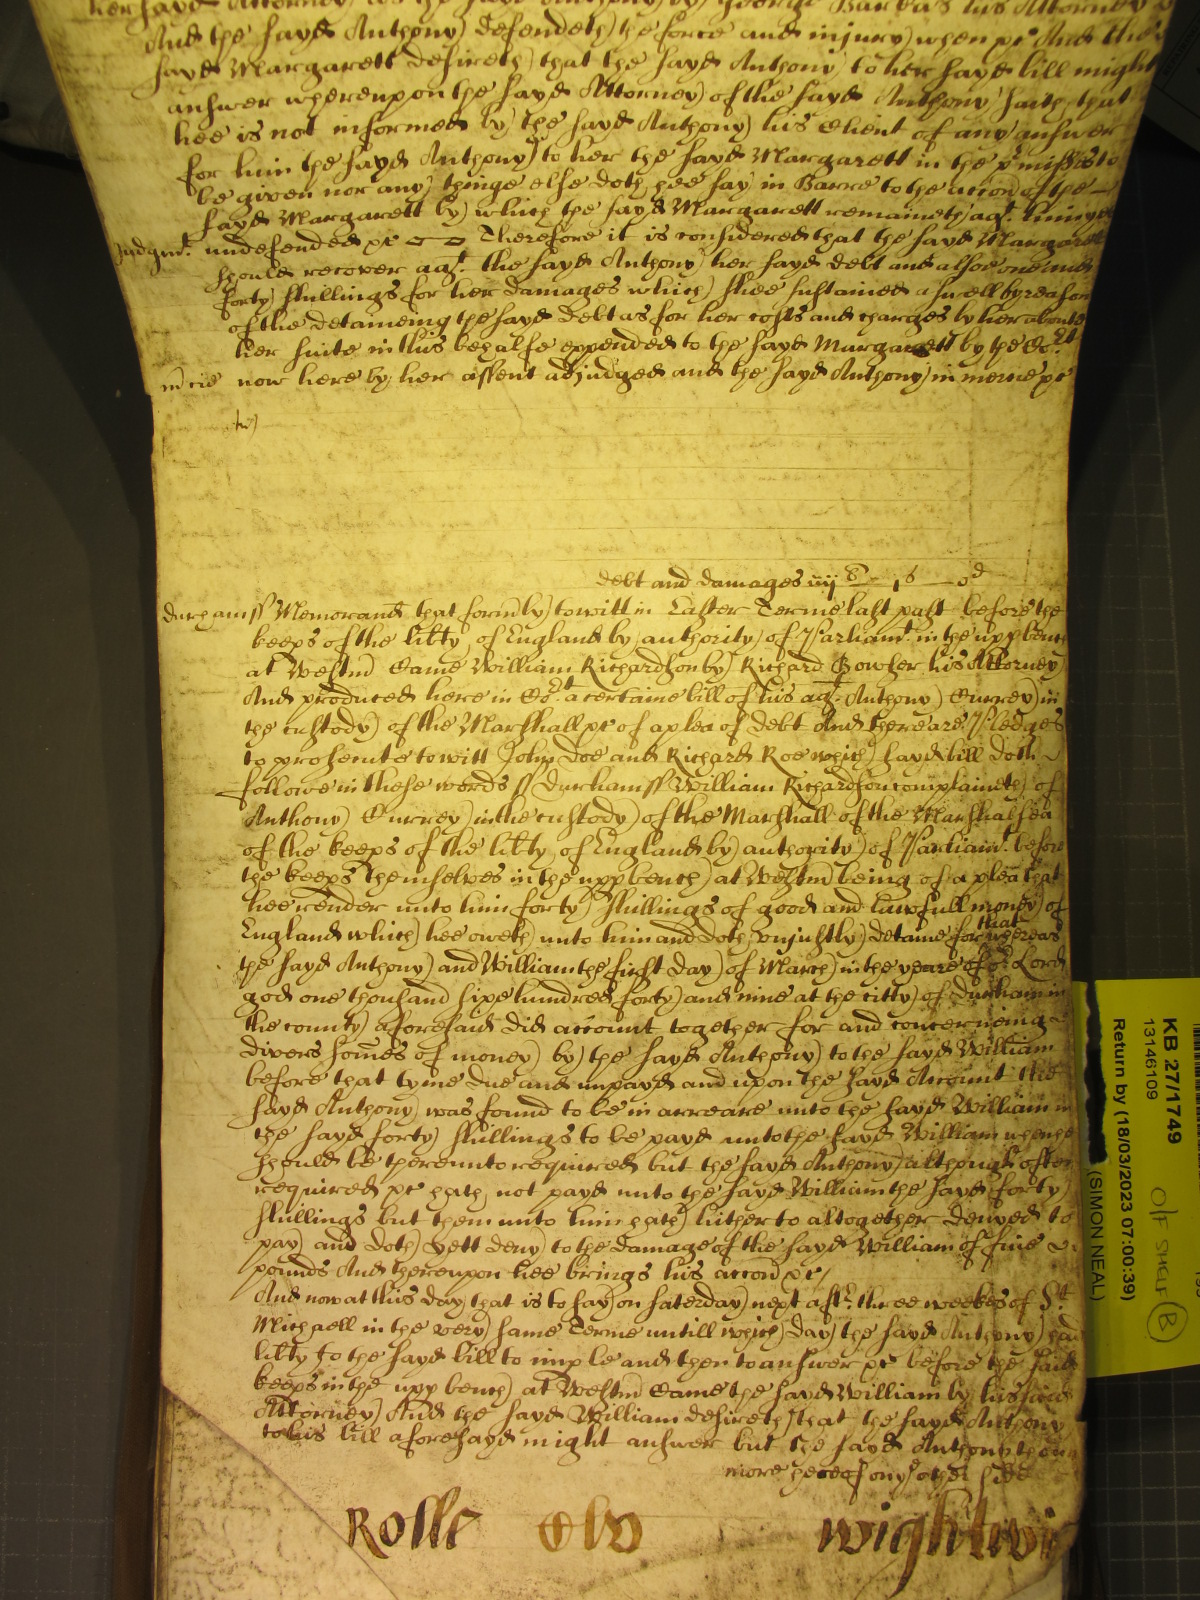 her sayd Attorney as the sayd Anthony by George Barbas his Attorney
And the sayd Anthony defendeth the force and injury when &c And the
sayd Margarett desireth that the sayd Anthony to her sayd bill might
answer whereupon the sayd Attorney of the sayd Anthony saith that
hee is not informed by the sayd Anthony his Client of any answer
for him the sayd Anthony to her the sayd Margarett in the p'misses to
be given nor any thinge else doth hee say in Barre to the accon of the
sayd Margarett by which the sayd Margarett remaineth agt. him
Judgmt. undefended &c Therefore it is considered that the sayd Margarett
should recover agt. the sayd Anthony her sayd debt and alsoe one and
forty shillings for her damages which shee sustained aswell by reason
of the detaineing the sayd debt as for her costs and charges by her aboute
her suite in this behalfe expended to the sayd Margarett by the Cort
m'cie now here by her assent adjudged and the sayd Anthony in mercie &c
debt and damages iiij li - 1 s - 0 d
Durham ss Memorand that form'ly to witt in Easter Terme last past before the
keeps of the lib'ty of England by authority of Parliamt. in the upp bench
at Westm' Came William Richardson by Richard Bowser his Attorney
And produced here in Cort a certaine bill of his agt. Anthony Currey in
the custody of the Marshall &c of a plea of debt And there are Pledges
to prosecute to witt John Doe and Richard Roe which sayd bill doth
followe in these words ss Durham ss William Richardson complaineth of
Anthony Currey in the custody of the Marshall of the Marshalsea
of the keeps of the lib'ty of England by authority of Parliamt. before
the keeps themselves in the upp bench at Westm' being of a plea that
hee render unto him forty shillings of good and lawfull money of
England which hee oweth unto him and doth unjustly detaine for that whereas
the sayd Anthony and William the first day of March in the yeare of or Lord
god one thousand sixe hundred forty and nine at the citty of Durham in
the county aforesaid did account together for and concerneing
divers somes of money by the sayd Anthony to the sayd William
before that tyme due and unpayd and upon the sayd Account the
sayd Anthony was found to be in arreare unto the sayd William in
the sayd forty shillings to be payd unto the sayd William when hee
should be thereunto required but the sayd Anthony although often
required &c hath not payd unto the sayd William the sayd forty
shillings but them unto him hath hitherto altogether denyed to
pay and doth yett deny to the damage of the sayd William of five
pounds And thereupon hee brings his accon &c
And now at this day that is to say on Saterday next aft'. three weekes of St.
Michaell in the very same Terme untill which day the sayd Anthony had
lib'ty to the sayd bill to imple and then to answer &c before the said
keeps in the upp bench at Westm' Came the sayd William by his said
Attorney And the sayd William desireth that the sayd Anthony
to his bill aforesayd might answer but the sayd Anthony though
more hereof on ye other side
Rolle Clv wightwi
KB 27/1749
13146109
Return by (18/03/2023 07:00:39)
(SIMON NEAL)
O/F SHELF B